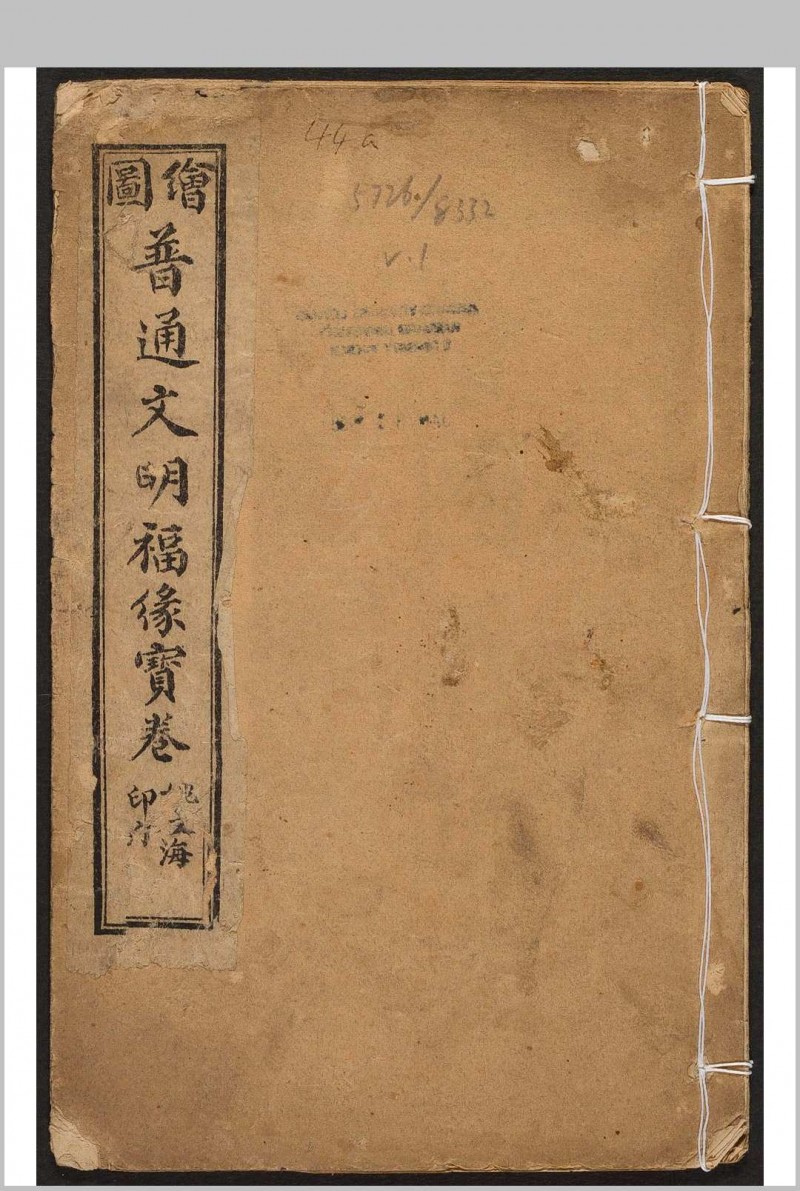 繪圖
普通文明福緣寶卷
文海
印行
44a
5726/8332
v.1